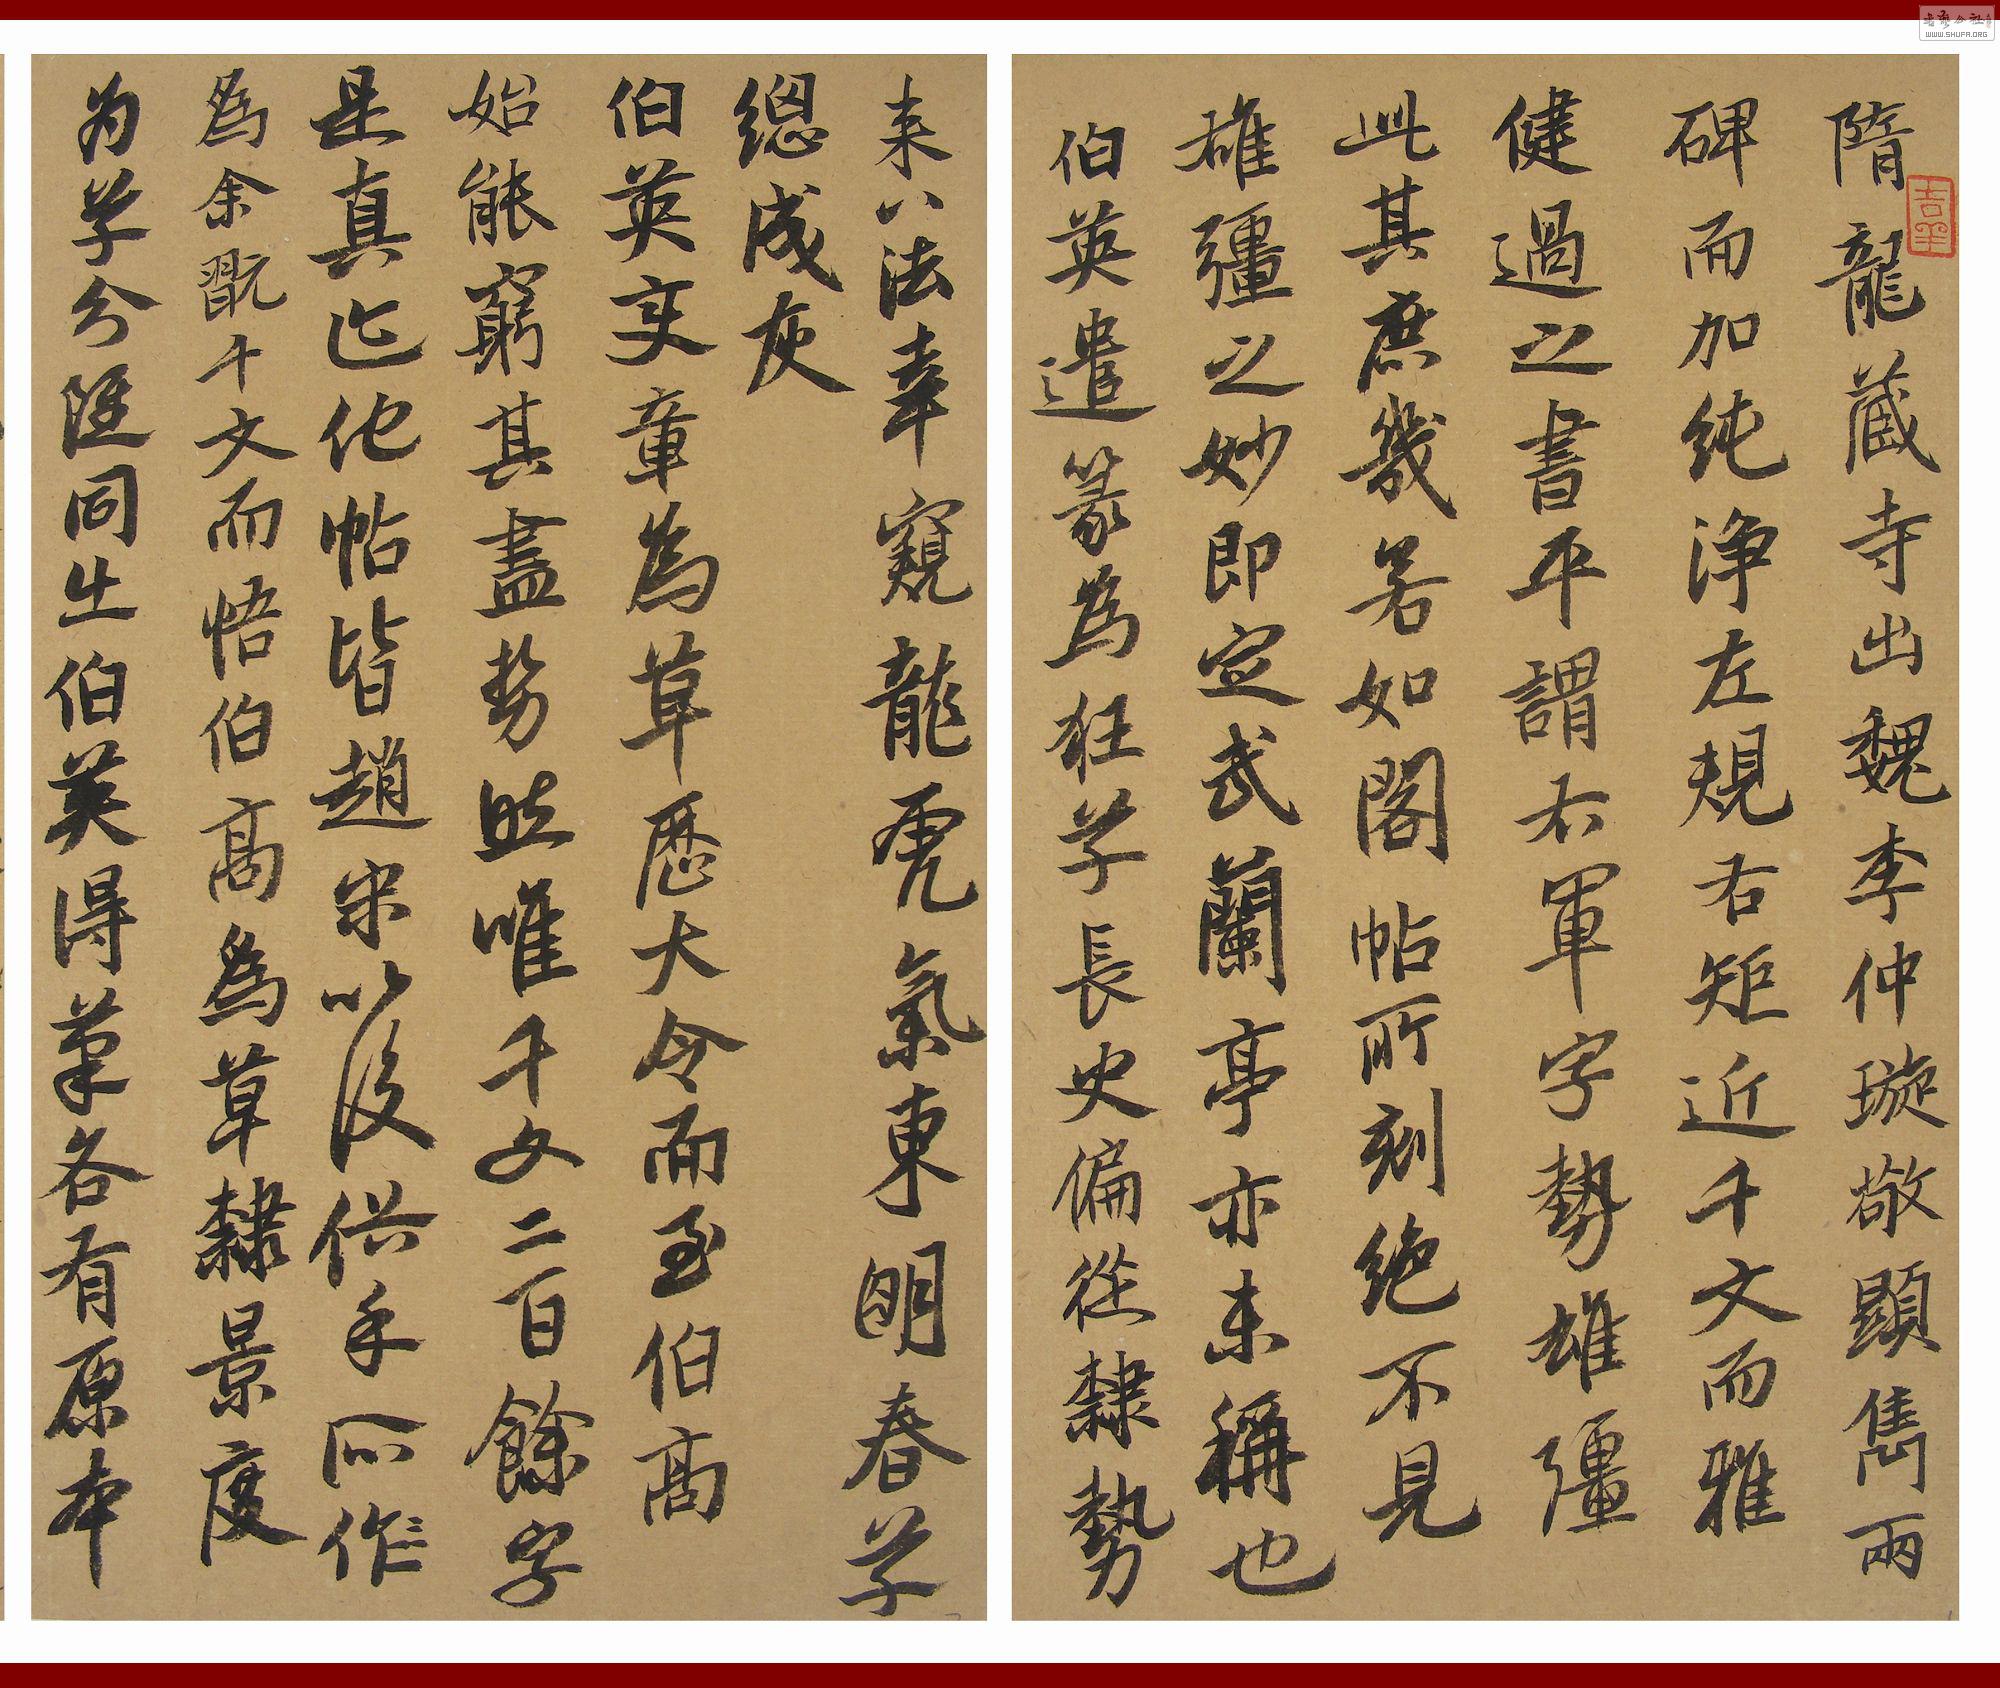 隋龍藏寺出魏李仲璇敬顯儁兩
碑而加純淨左規右矩近千文而雅
健過之書平謂右軍字勢雄彊
此其庶幾若如閣帖所刻絕不見
雄彊之妙即定武蘭亭亦未稱也
伯英遣篆為狂学長史偏從隸勢
来八法幸窺龍虎氣東明春学
總成灰
伯英变章為草歷大令而至伯高
始能窮其盡勢然唯千文二百餘字
是真迹他帖皆趙宋以後俗手所作
為余翫千文而悟伯高為草隸景度
为学分隸同出伯英得筆各有原本
吉羊
WWW.SHUFA.ORG